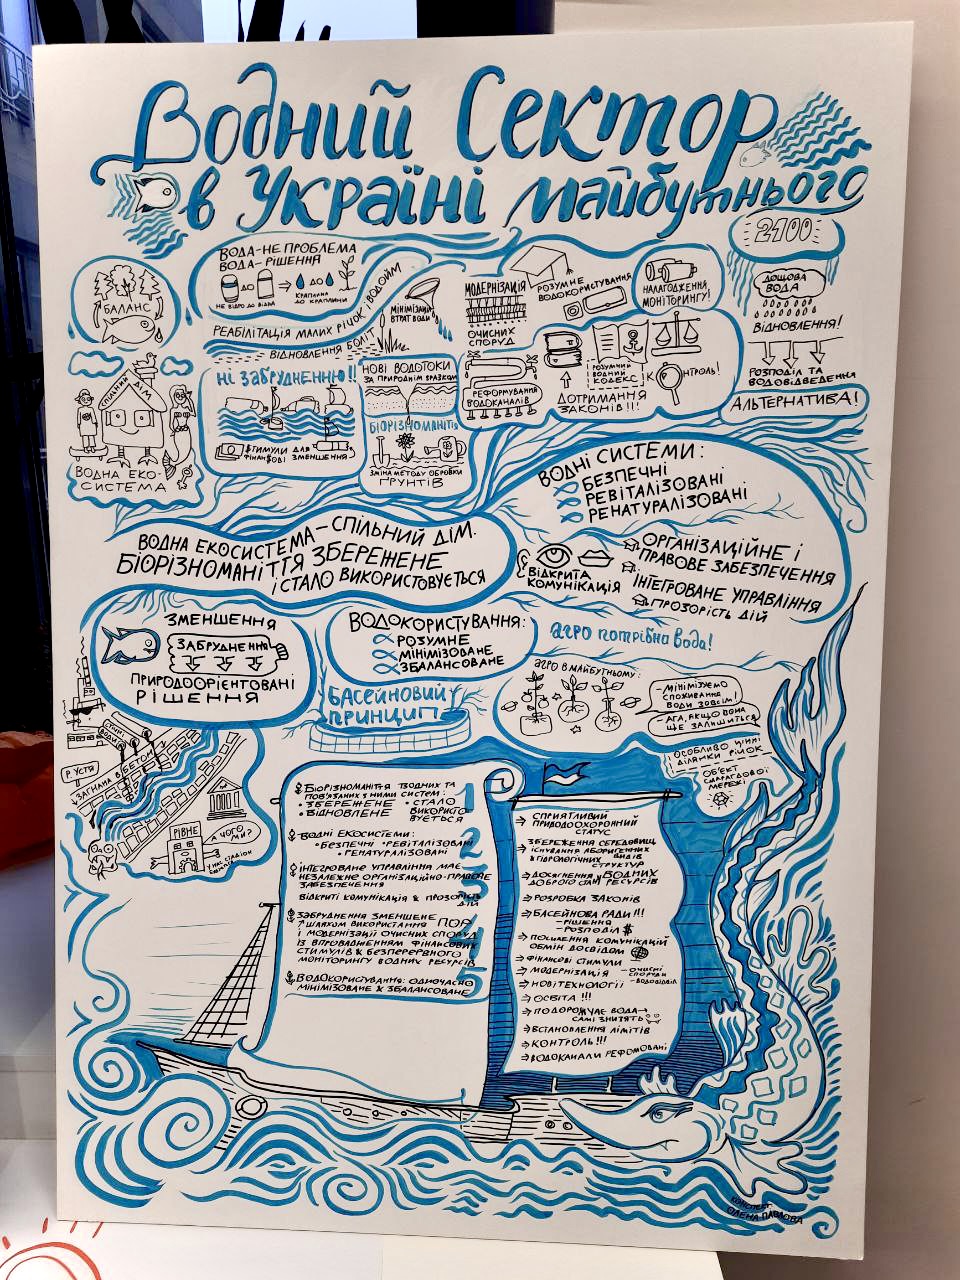 Водний Сектор
в Україні майбутнього
2100
БАЛАНС
ВОДА-НЕ ПРОБЛЕМА
ВОДА-РІШЕННЯ
ДО
ДО
НЕ ВІДРО ДО ВІДРА
КРАПЛИНА
ДО КРАПЛИНИ
РЕАБІЛІТАЦІЯ МАЛИХ РІЧОК І ВОДОЙМ
ВІДНОВЛЕННЯ БОЛІТ
МІНІМІЗАЦІЯ
ВТРАТ ВОДИ
МОДЕРНІЗАЦІЯ
ОЧИСНИХ
СПОРУД
РОЗУМНЕ
ВОДОКОРИСТУВАННЯ
НАЛАГОДЖЕННЯ
МОНІТОРИНГУ!
ДОЩОВА
ВОДА
ВІДНОВЛЕННЯ!
РОЗПОДІЛ ТА
ВОДОВІДВЕДЕННЯ
АЛЬТЕРНАТИВА!
СПІЛЬНИЙ ДІМ
ВОДНА ЕКО-
СИСТЕМА
НІ ЗАБРУДНЕННЮ!!
СТИМУЛИ ДЛЯ
ФІНАНСОВІ ЗМЕНШЕННЯ
НОВІ ВОДОТОКИ
ЗА ПРИРОДНІМ ЗРАЗКОМ
БІОРІЗНОМАНІТТЯ
ЗМІНА МЕТОДУ ОБРОБКИ
ҐРУНТІВ
РЕФОРМУВАННЯ
ВОДОКАНАЛІВ
РОЗУМНИЙ
ВОДНИЙ
КОДЕКС
КОНТРОЛЬ!
ДОТРИМАННЯ
ЗАКОНІВ!!!
ВОДНІ СИСТЕМИ:
БЕЗПЕЧНІ
РЕВІТАЛІЗОВАНІ
РЕНАТУРАЛІЗОВАНІ
ВОДНА ЕКОСИСТЕМА-СПІЛЬНИЙ ДІМ.
БІОРІЗНОМАНІТТЯ ЗБЕРЕЖЕНЕ
І СТАЛО ВИКОРИСТОВУЄТЬСЯ
ВІДКРИТА
КОМУНІКАЦІЯ
ОРГАНІЗАЦІЙНЕ І
ПРАВОВЕ ЗАБЕЗПЕЧЕННЯ
ІНТЕГРОВАНЕ УПРАВЛІННЯ
ПРОЗОРІСТЬ ДІЙ
ЗМЕНШЕННЯ
ЗАБРУДНЕННЯ
ПРИРОДООРІЄНТОВАНІ
РІШЕННЯ
ВОДОКОРИСТУВАННЯ:
РОЗУМНЕ
МІНІМІЗОВАНЕ
ЗБАЛАНСОВАНЕ
АГРО ПОТРІБНА ВОДА!
БАСЕЙНОВИЙ
ПРИНЦИП
АГРО В МАЙБУТНЬОМУ:
-МІНІМІЗУЄМО
СПОЖИВАННЯ
ВОДИ ЗОВСІМ!
-АГА, ЯКЩО ВОНА
ЩЕ ЗАЛИШИТЬСЯ
ОСОБЛИВО ЦІННІ
ДІЛЯНКИ РІЧОК
ОБ'ЄКТ
СМАРАГДОВОЇ
МЕРЕЖІ
Р. УСТЯ
ЗАГНАНА В БЕТОН
РІВНЕ
А ЧОГО
БІОРІЗНОМАНІТТЯ ВОДНИХ ТА
ПОВ'ЯЗАНИХ З НИМИ СИСТЕМ:
• ЗБЕРЕЖЕНЕ • СТАЛО
• ВІДНОВЛЕНЕ ВИКОРИСТО
ВУЄТЬСЯ
1
ВОДНІ ЕКОСИСТЕМИ:
• БЕЗПЕЧНІ • РЕВІТАЛІЗОВАНІ
• РЕНАТУРАЛІЗОВАНІ
2
ІНТЕГРОВАНЕ УПРАВЛІННЯ МАЄ
НЕЗАЛЕЖНЕ ОРГАНІЗАЦІЙНО-ПРАВОВЕ
ЗАБЕЗПЕЧЕННЯ
ВІДКРИТІ КОМУНІКАЦІЯ & ПРОЗОРІСТЬ
ДІЙ
3
ЗАБРУДНЕННЯ ЗМЕНШЕНЕ
ШЛЯХОМ ВИКОРИСТАННЯ ПОР
І МОДЕРНІЗАЦІЇ ОЧИСНИХ СПОРУД
ІЗ ВПРОВАДЖЕННЯМ ФІНАНСОВИХ
СТИМУЛІВ & БЕЗПЕРЕРВНОГО
МОНІТОРИНГУ ВОДНИХ РЕСУРСІВ
4
ВОДОКОРИСТУВАННЯ: ОДНОЧАСНО
МІНІМІЗОВАНЕ & ЗБАЛАНСОВАНЕ
5
СПРИЯТЛИВИЙ
ПРИРОДООХОРОННИЙ
СТАТУС
ЗБЕРЕЖЕННЯ СЕРЕДОВИЩ
ІСНУВАННЯ АБОРИГЕННИХ ВИДІВ
& ГІДРОЛОГІЧНИХ СТРУКТУР
ДОСЯГНЕННЯ ВОДНИХ
ДОБРОГО СТАНУ РЕСУРСІВ
РОЗРОБКА ЗАКОНІВ
БАСЕЙНОВА РАДИ!!!
-РІШЕННЯ
-РОЗПОДІЛ $
ПОСИЛЕННЯ КОМУНІКАЦІЙ
ОБМІН ДОСВІДОМ
ФІНАНСОВІ СТИМУЛИ
МОДЕРНІЗАЦІЯ -ОЧИСНІ
СПОРУДИ
-ВОДОВІДВІД
НОВІ ТЕХНОЛОГІЇ
ОСВІТА!!!
ПОДОРОЖЧАЄ ВОДА→
САМІ ЗНИЗЯТЬ
ВСТАНОВЛЕННЯ ЛІМІТІВ
КОНТРОЛЬ!!!
ВОДОКАНАЛИ РЕФОМОВАНІ
КОНСПЕКТ:
ОЛЕНА ПАВЛОВА